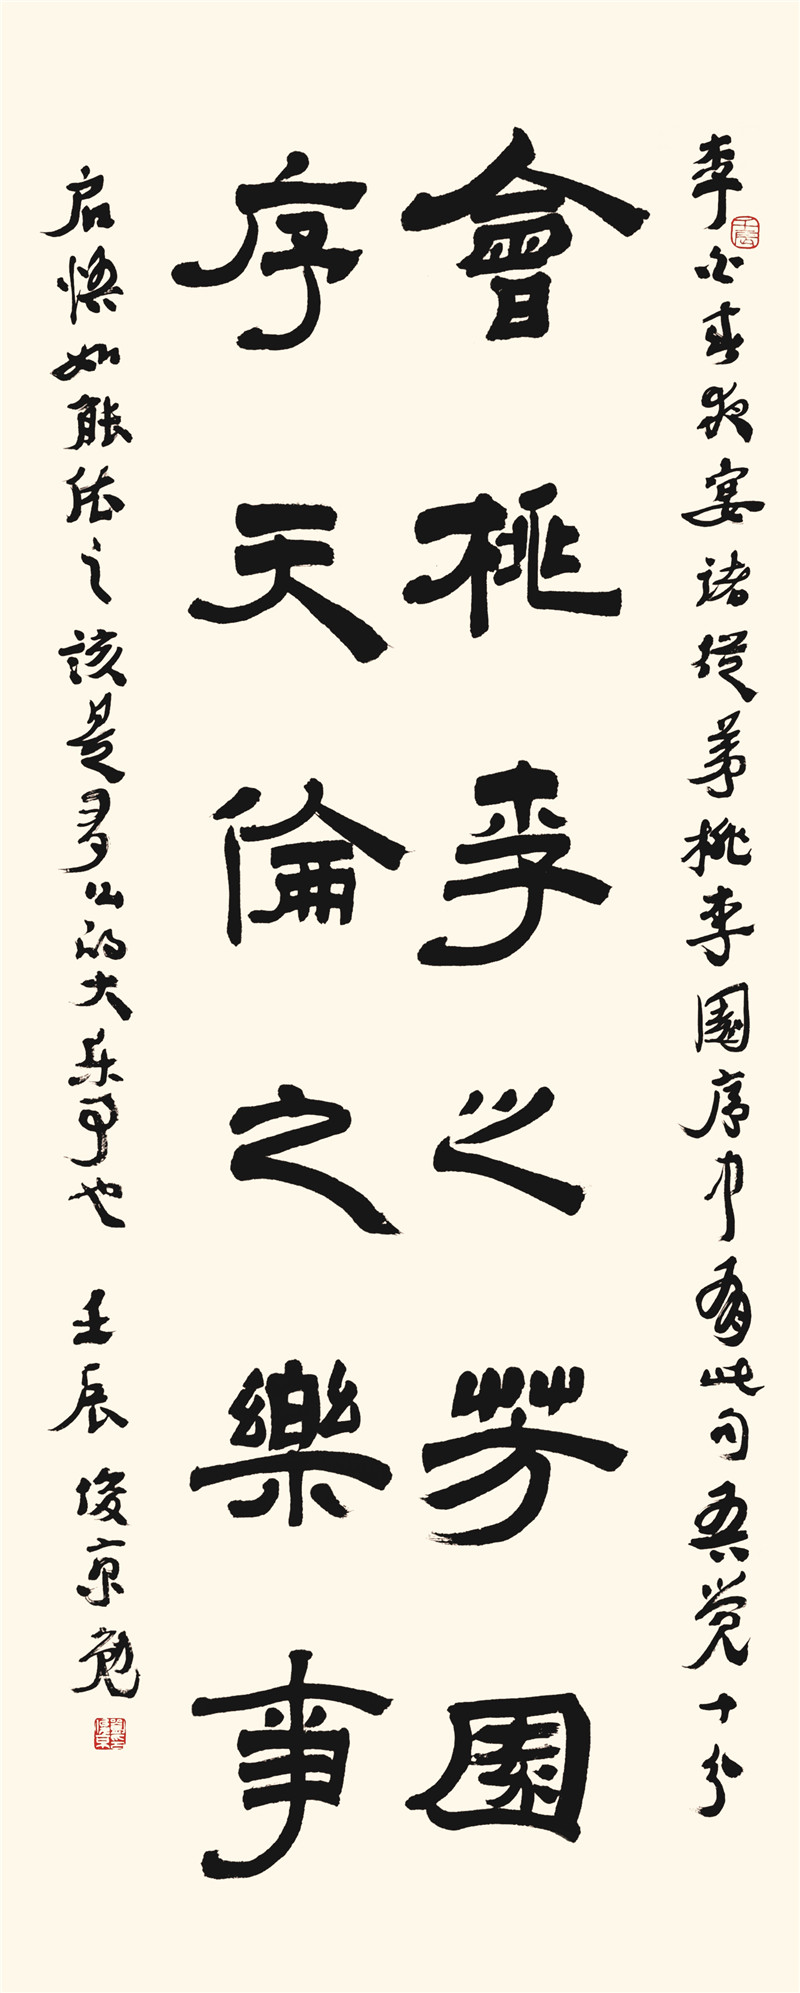 李白春夜宴諸從弟桃李園序中有此句吾觉十分
會桃李之芳園
序天倫之樂事
启悟如能依之該是多么的大乐事也 壬辰 俊京勉
壬辰